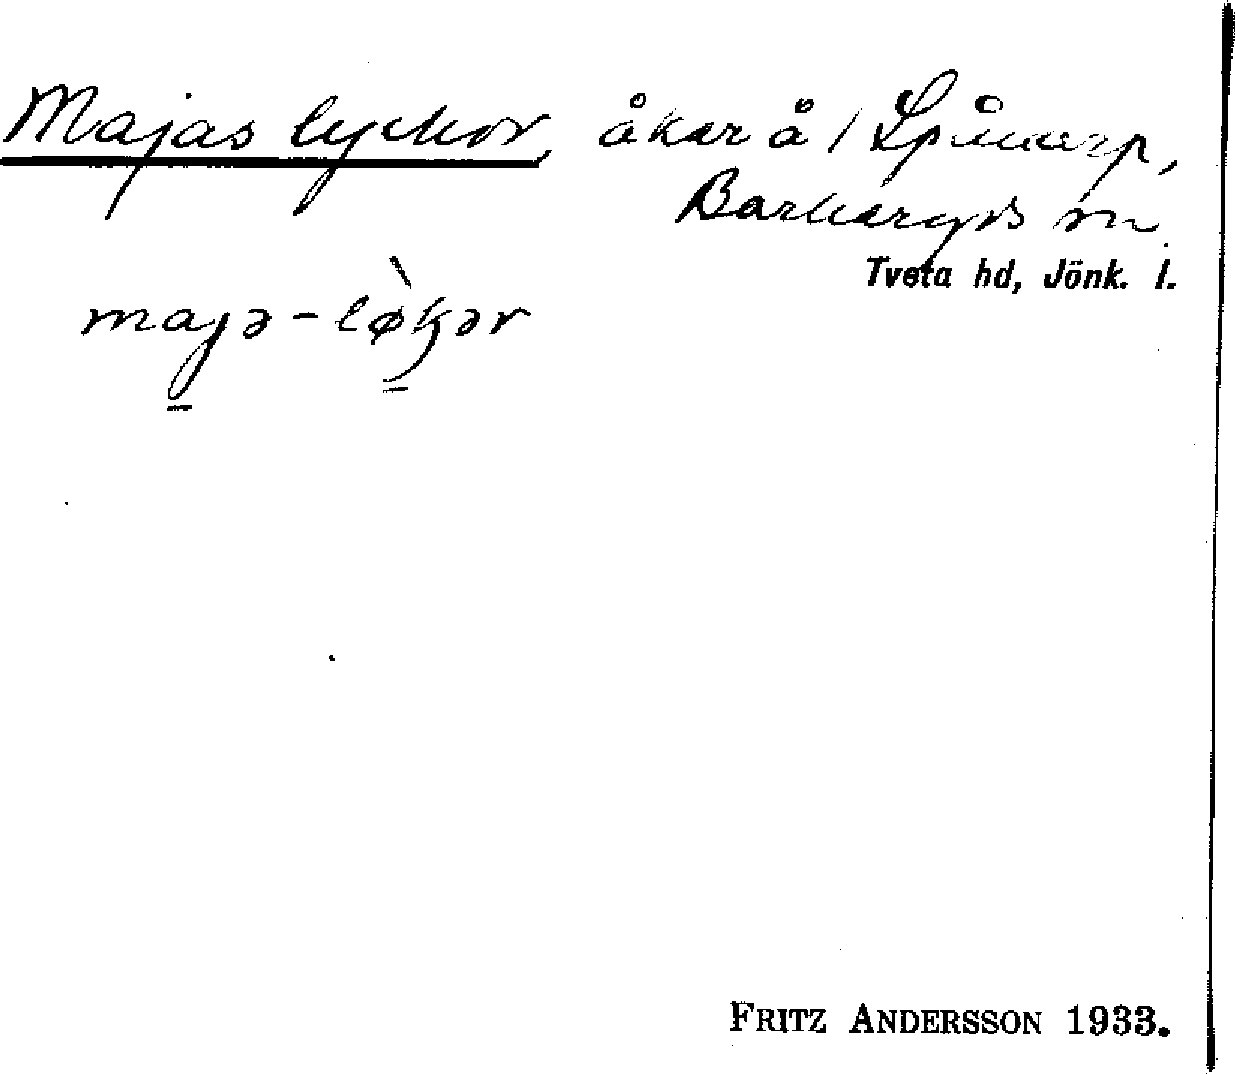 Majas lyckor, åkar å / Spånarp,
Barkeryds sn.
Tveta hd, Jönk. l.
majə-lø̀kər
FRITZ ANDERSSON 1933.